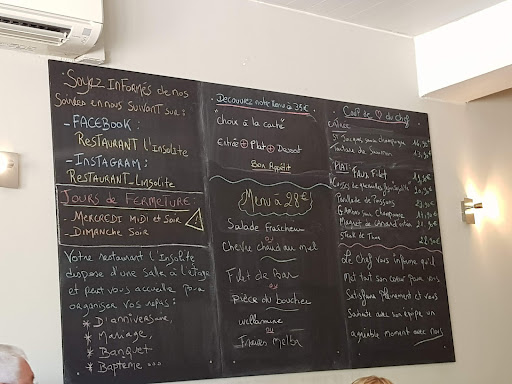 Soyez Informés de nos
Soirées en nous suivant sur:
- FACEBOOK:
RESTAURANT L'Insolite
- INSTAGRAM:
RESTAURANT_Linsolite
Jours de Fermeture:
- MERCREDI MIDI et Soir
- DIMANCHE SOIR
Votre restaurant l'Insolite
dispose d'une salle à l'étage
et peut vous accueillir pour
organiser vos repas:
* D'anniversaire,
* Mariage,
* Banquet
* Bapteme ...
Decouvrez notre Menu à 35€
choix à la carte
Entrée + Plat + Dessert
Bon Appétit
{Menu à 28€}
Salade Fraîcheur
ou
Chèvre chaud au miel
Filet de Bar
ou
Pièce du boucher
ou
Melba
Coup de ♡ du chef
ENTRÉE
St Jacques
Tartare de Saumon
PLAT:
Faux Filet
Parillade de Poissons
Magret de Canard
Steak de Thon
Le chef vous informe qu'il
Met tout son coeur pour vous
Satisfaire pleinement et vous
Souhaite avec son équipe un
agréable moment avec nous